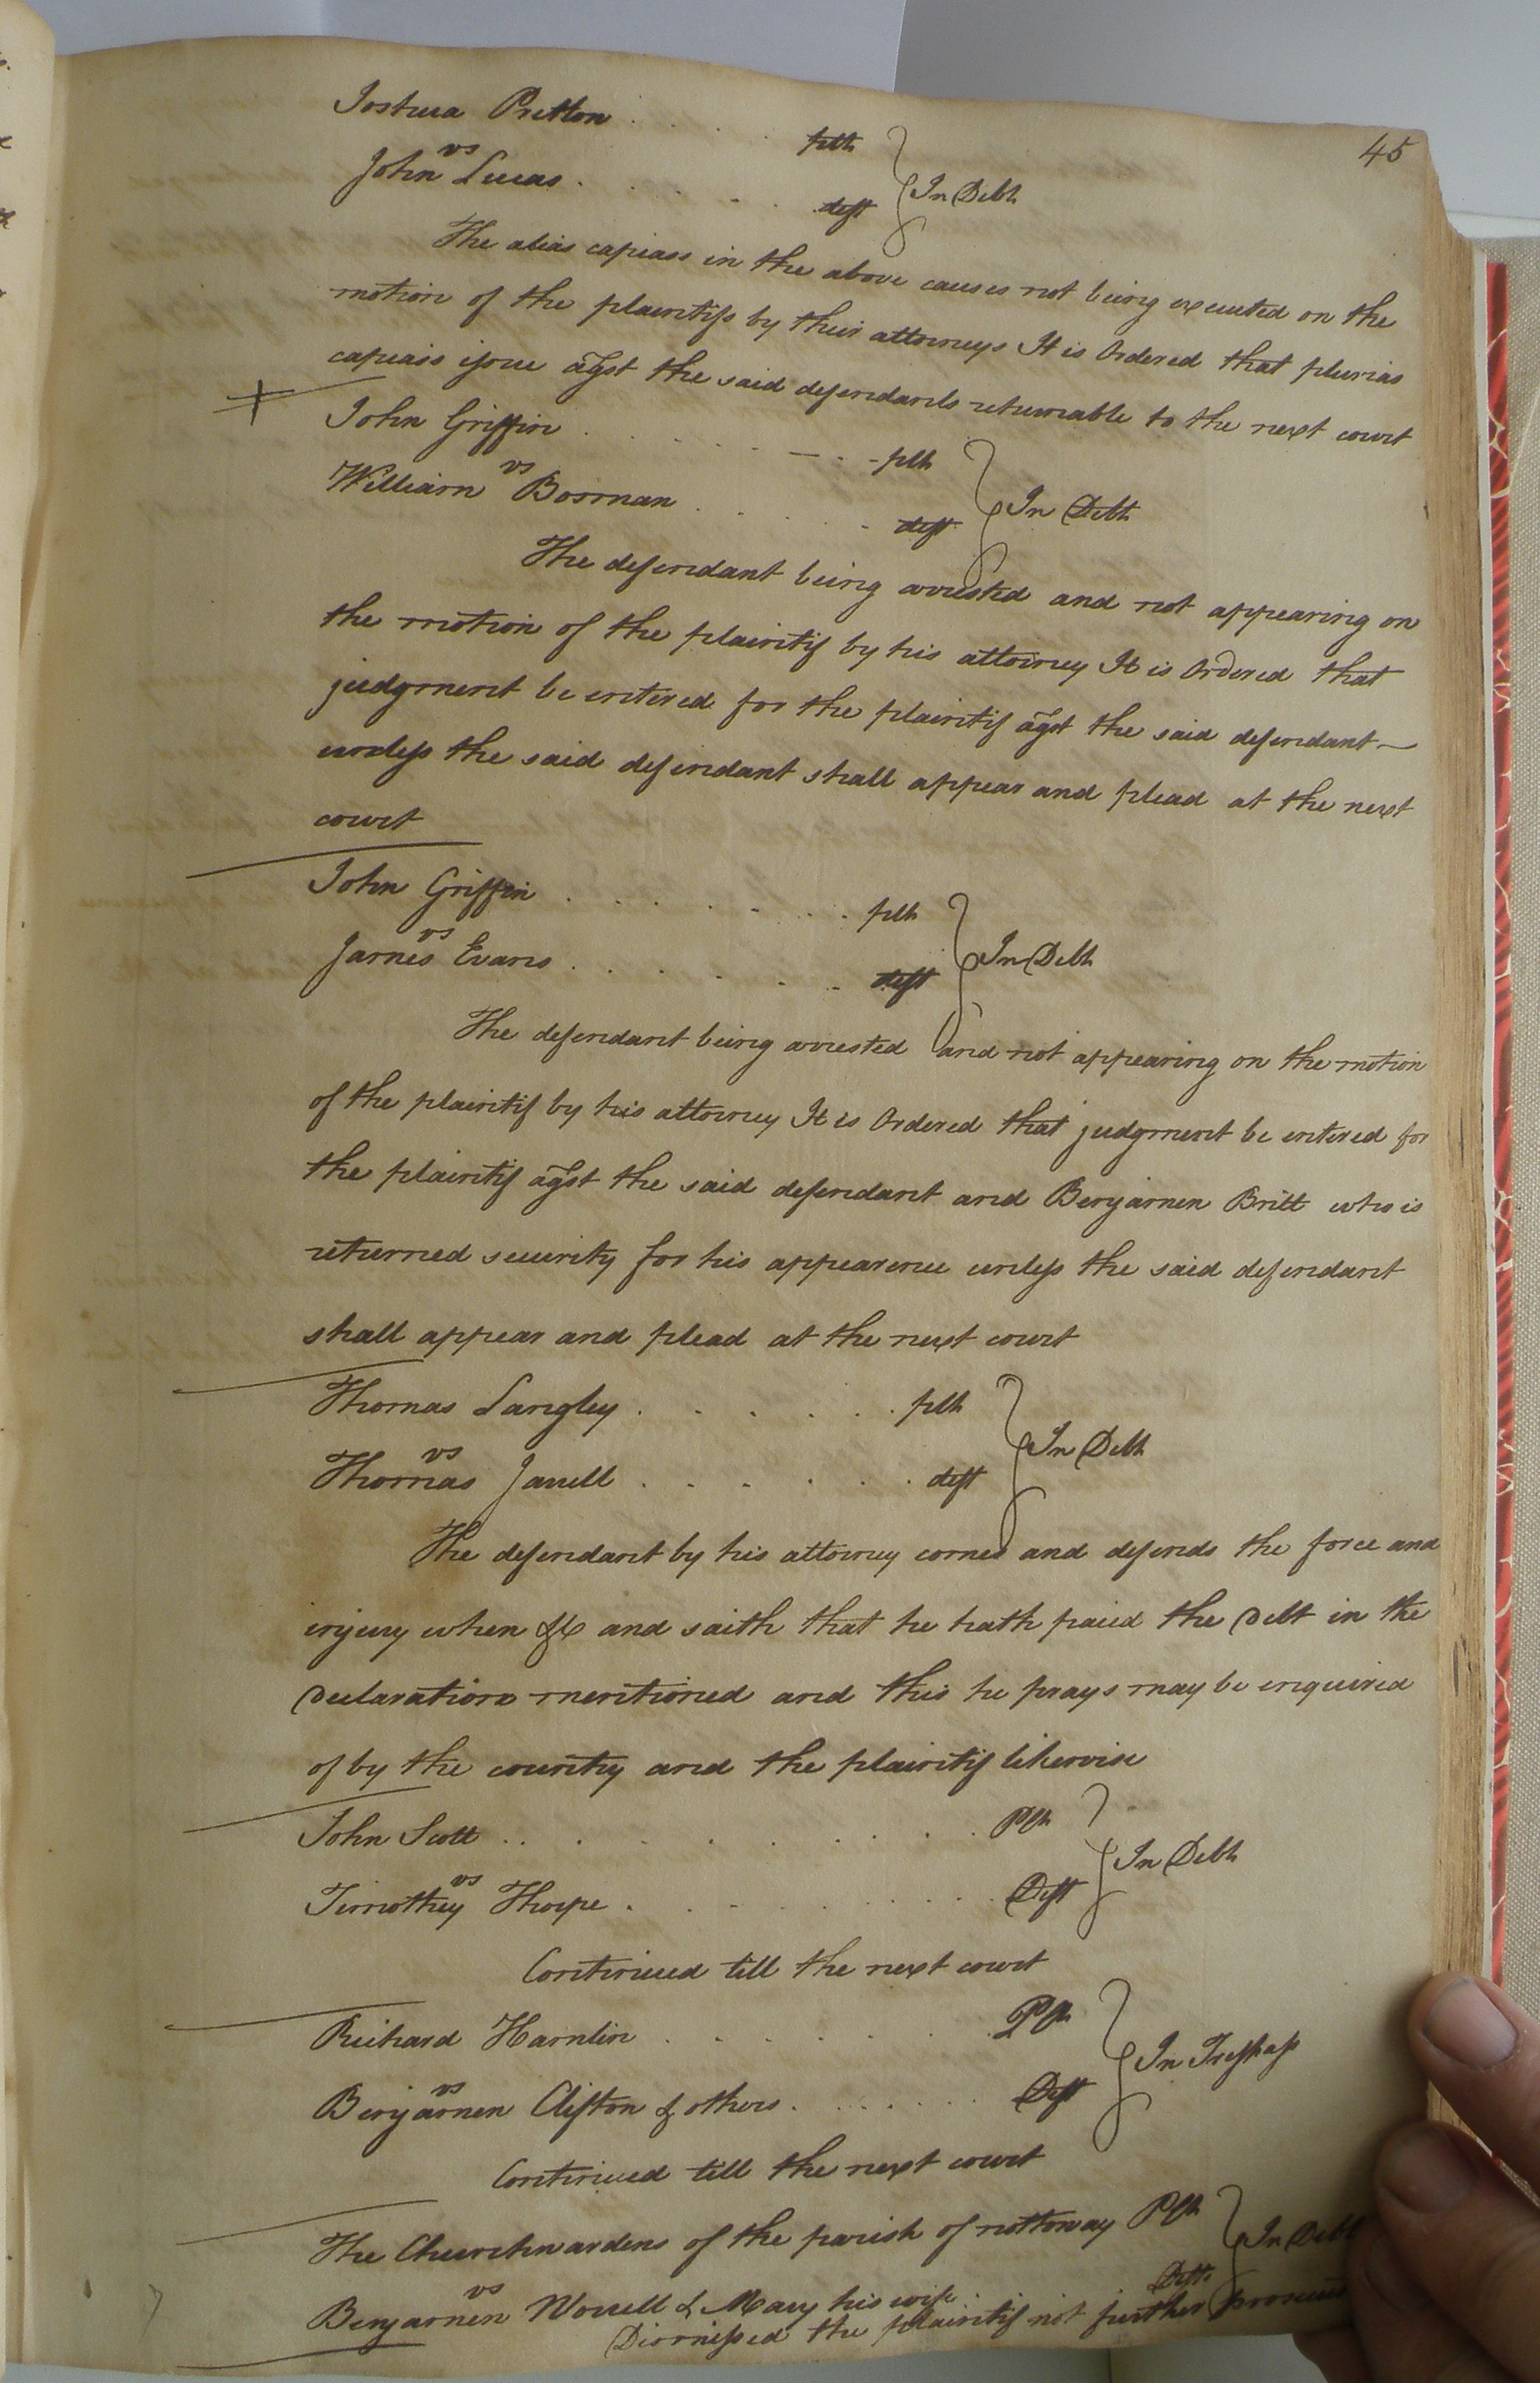 45
Joshua Pretlow . . . . plt
vs
John Lucas . . . . . deft
In Debt
The alias capiass in the above causes not being executed on the
motion of the plaintifs by their attorneys It is Ordered that plurias
capiass issue agst the said defendants returnable to the next court
John Griffin . . . . . plt
vs
William Bosman . . . . deft
In Debt
The defendant being arrested and not appearing on
the motion of the plaintif by his attorney It is Ordered that
judgment be entered for the plaintif agst the said defendant
unless the said defendant shall appear and plead at the next
court
John Griffin . . . . . . plt
vs
James Evans . . . . . . deft
In Debt
The defendant being arrested and not appearing on the motion
of the plaintif by his attorney It is Ordered that judgment be entered for
the plaintif agst the said defendant and Benjamen Britt who is
returned security for his appearence unless the said defendant
shall appear and plead at the next court
Thomas Langley . . . . . plt
vs
Thomas Jarrell . . . . . deft
In Debt
The defendant by his attorney comes and defends the force and
injury when &c and saith that he hath paied the debt in the
Declaration mentioned and this he prays may be enquired
of by the country and the plaintif likewise
John Scott . . . . . . . . Plt
vs
Timothey Thorpe . . . . . . . Deft
In Debt
Continued till the next court
Richard Hamlin . . . . . . Plt
vs
Benjamen Clifton & others . . . . . . Deft
In Tresspass
Continued till the next court
The Churchwardens of the parish of nottoway Plt
vs
Benjamen Worrell & Mary his wife Deft
In Debt
Dismissed the plaintif not further